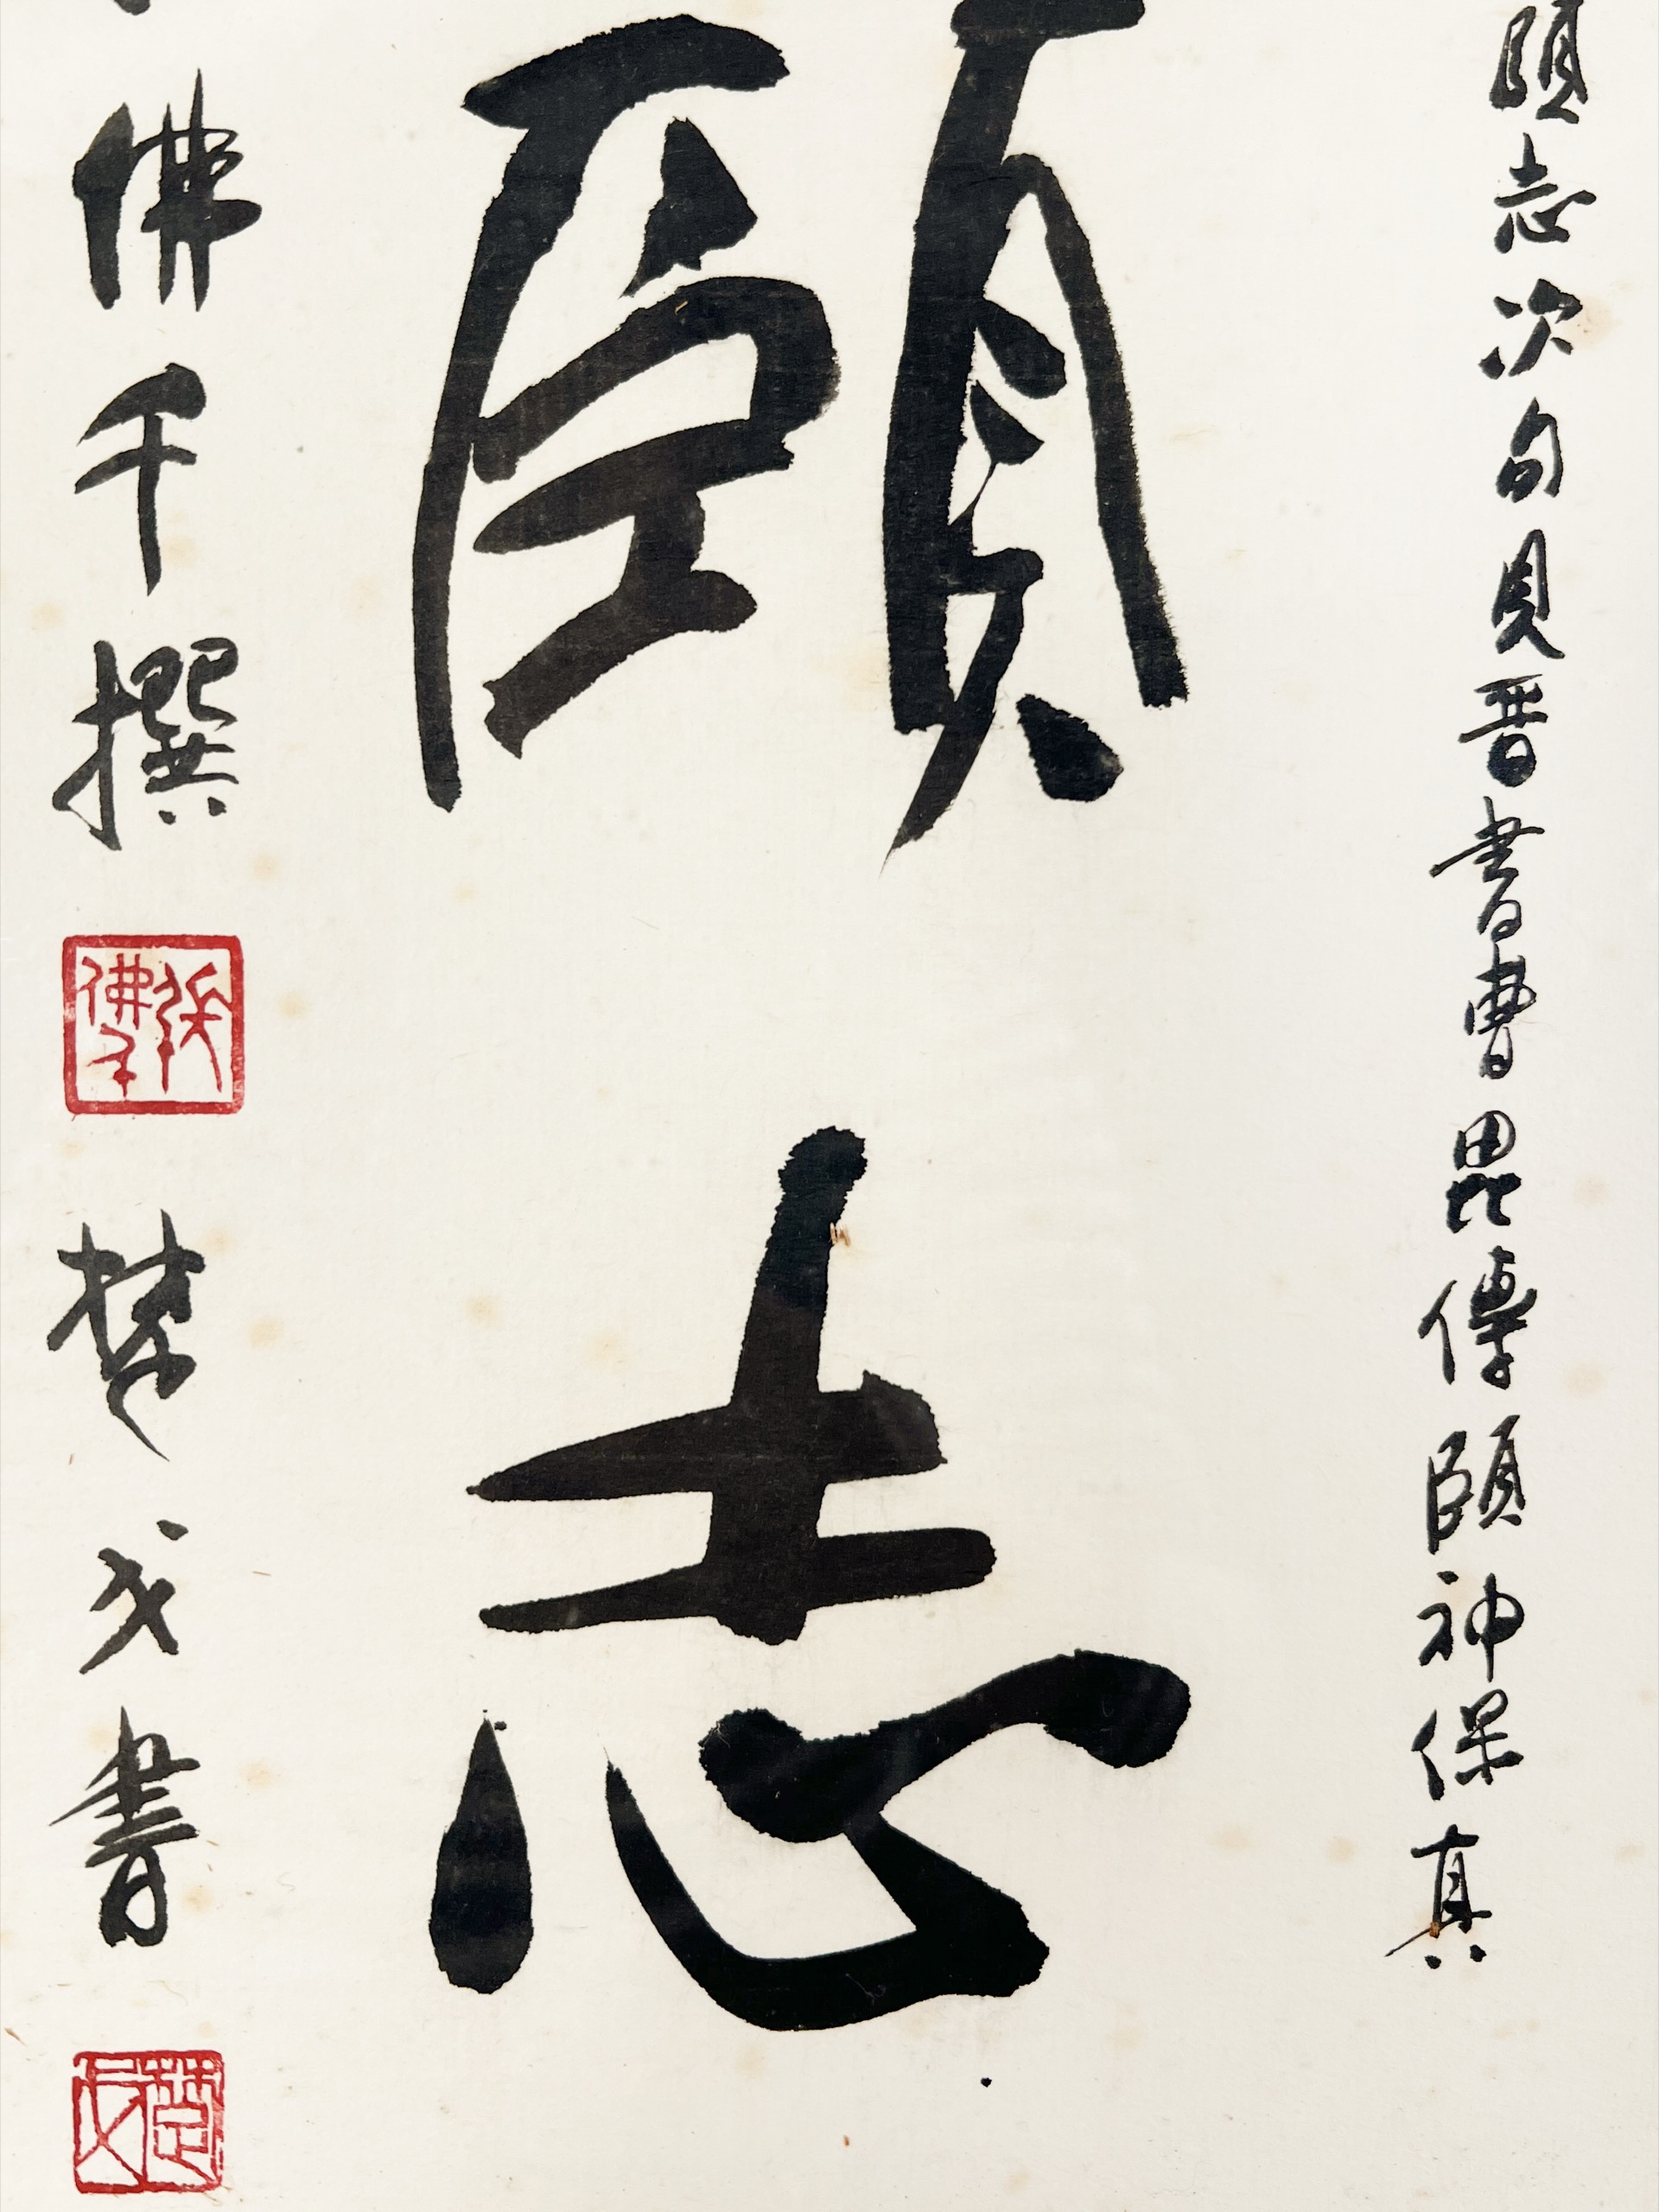 頤志次句見晋書曹毘傳頤神保真
頤志
佛千撰
張佛千
楚戈書
楚戈